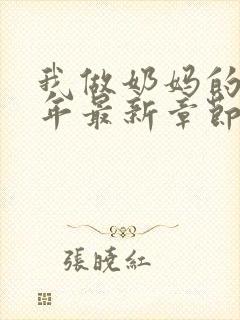 我做奶妈的
年最新章節
張曉紅